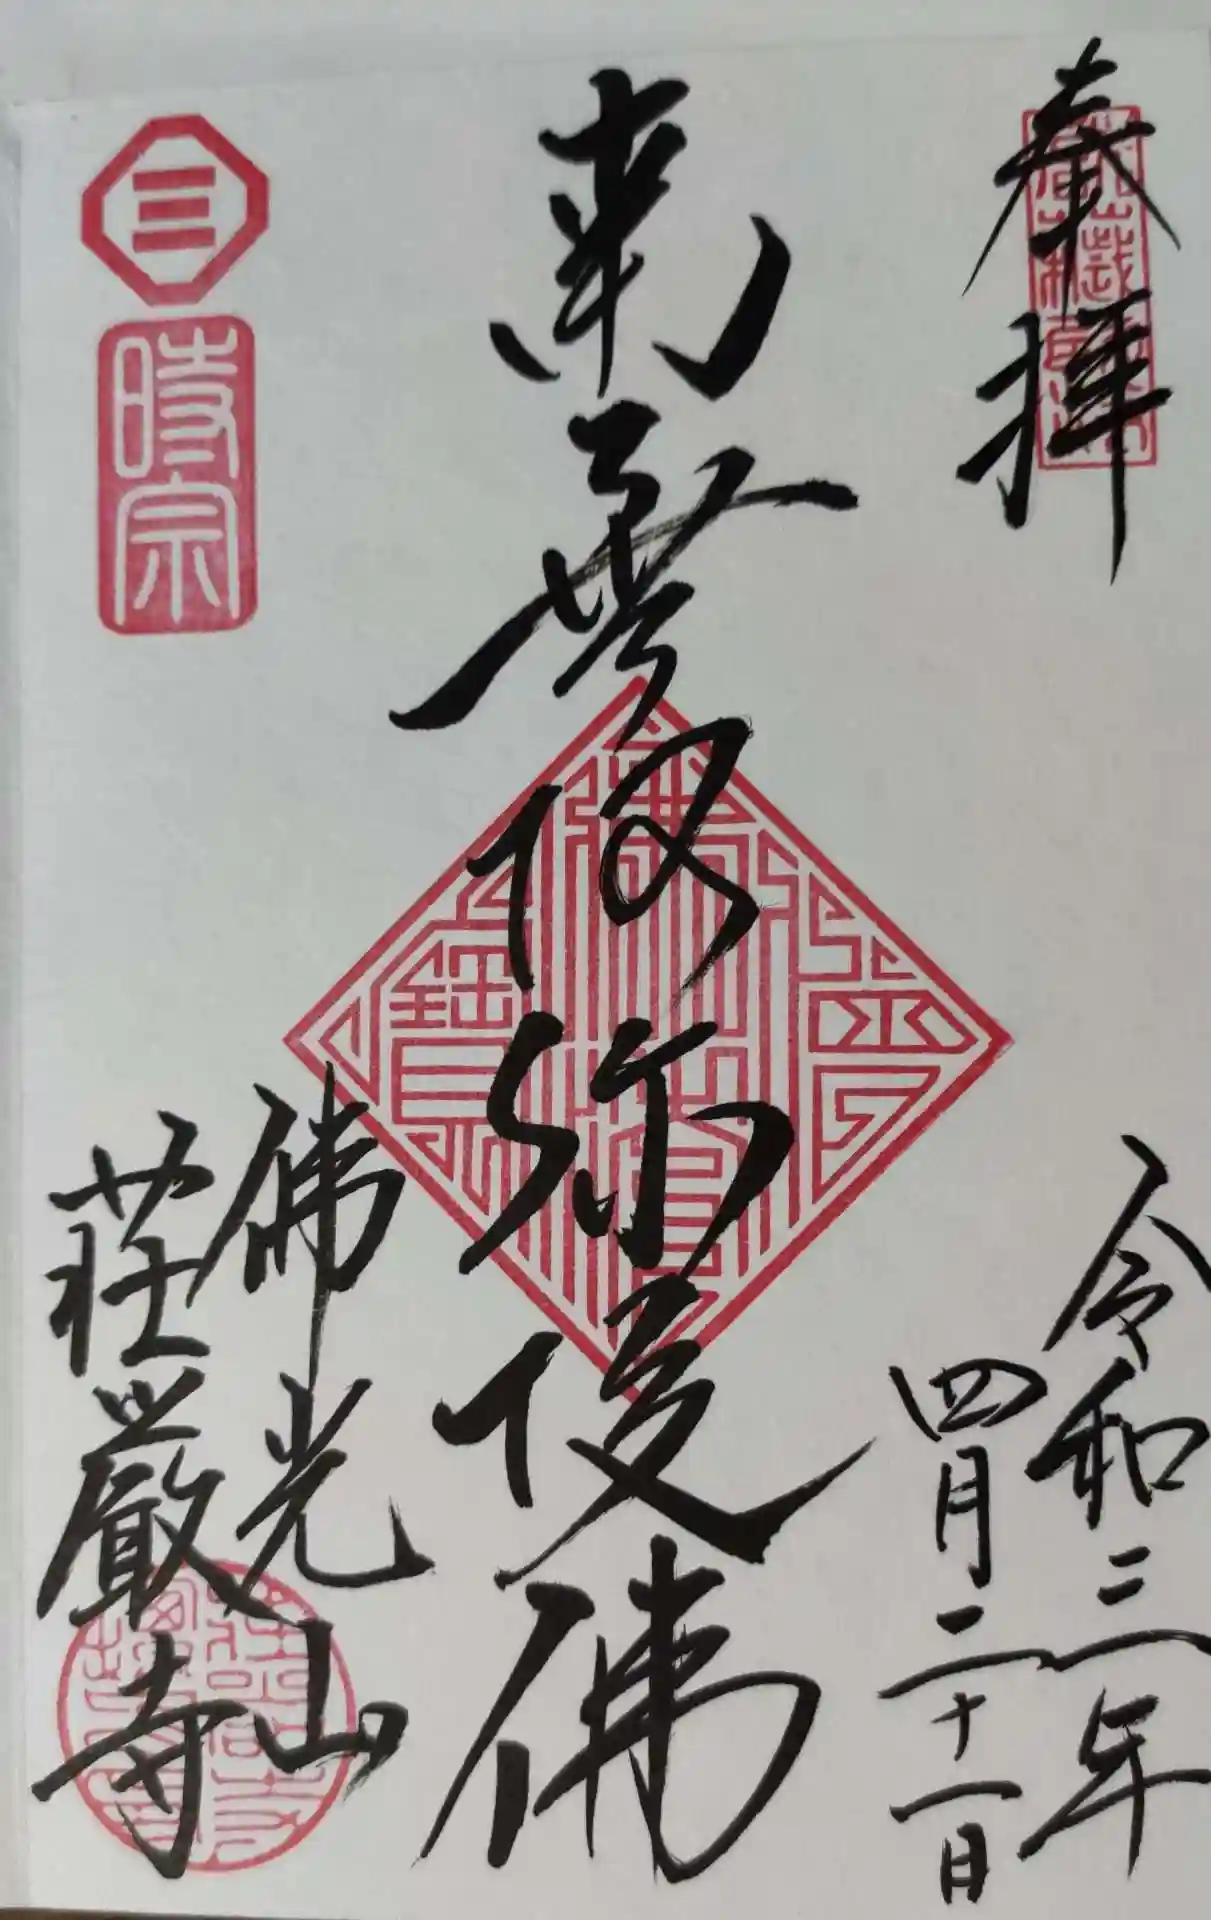 奉拝
令和三年
四月二十一日
南無阿弥陀佛
佛光山
荘嚴寺
時宗